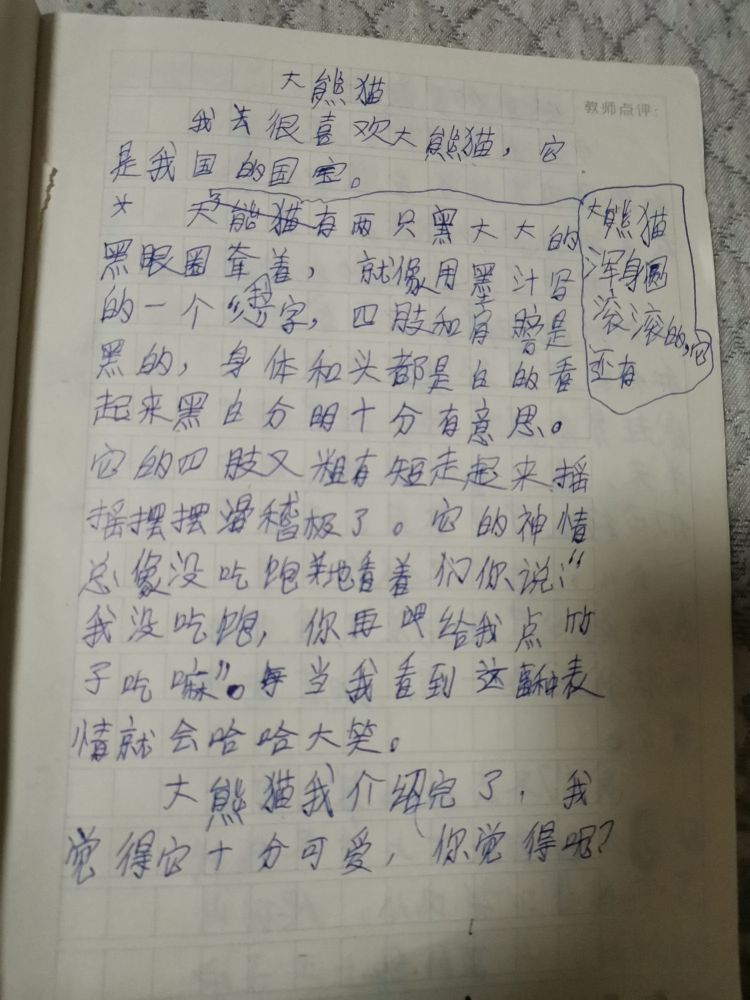 大熊猫
教师点评:
我去很喜欢大熊猫，它
是我国的国宝。
大熊猫有两只黑大大的
大熊猫
浑身圆
滚滚的,它
还有
黑眼圈牵着，就像用墨汁写
的一个“字，四肢和肩膀是
黑的，身体和头都是白的看
起来黑白分明十分有意思。
它的四肢又粗有短走起来摇
摇摆摆滑稽极了。它的神情
总像没吃饱地看着们你说:“
我没吃饱，你再呷给我点竹
子吃嘛”。每当我看到这种表
情就会哈哈大笑。
大熊猫我介绍完了，我
觉得它十分可爱，你觉得呢?